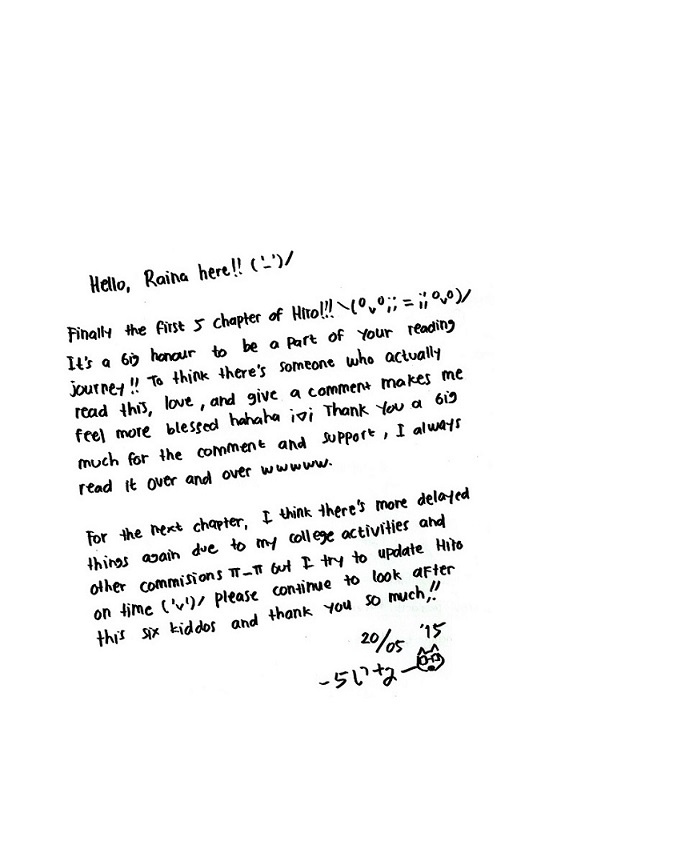 Hello, Raina here!! ('-')/
Finally the first 5 chapter of Hiro!!! \(°v°;; = ;;°v°)/
It's a big honour to be a part of your reading
journey!! To think there's someone who actually
read this, love, and give a comment makes me
feel more blessed hahaha i▽i Thank you a big
much for the comment and support, I always
read it over and over wwwww.
For the next chapter, I think there's more delayed
things again due to my college activities and
other commisions π_π but I try to update Hiro
on time ('v')/ please continue to look after
this six kiddos and thank you so much!!
20/05 '15